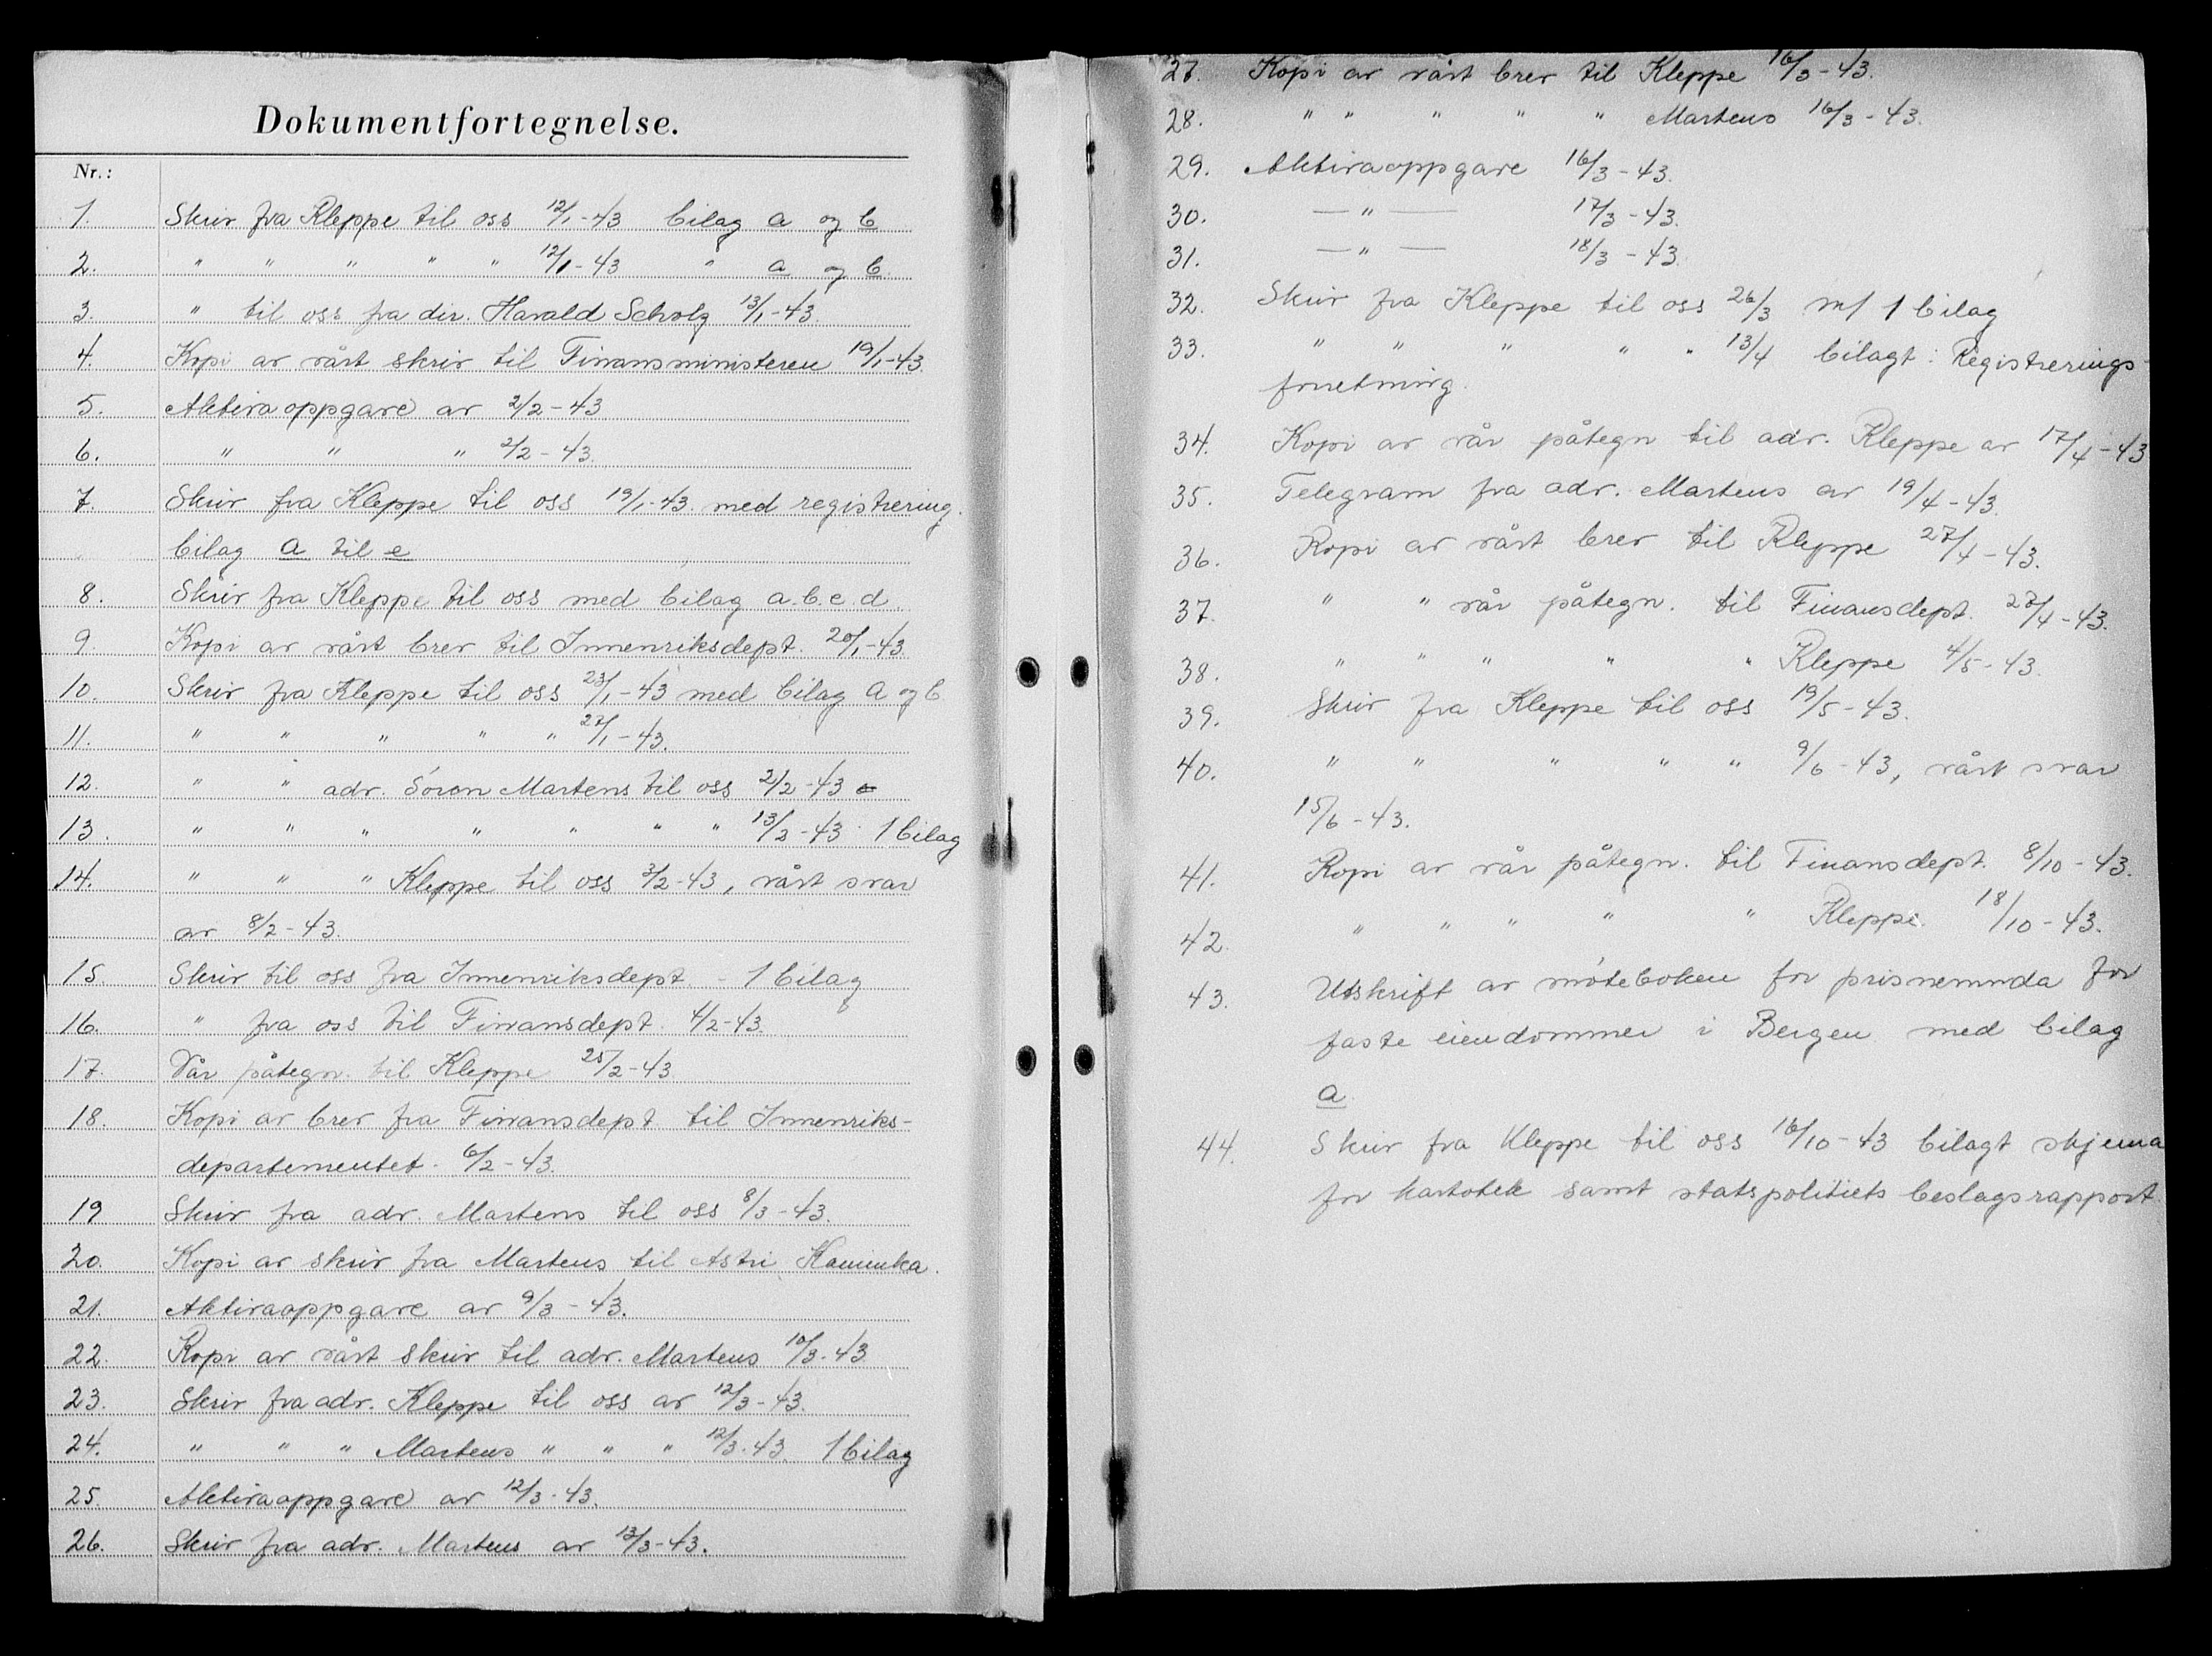 Dokumentfortegnelse.
Nr.:
1. Skriv fra Kleppe til oss 12/1-43 bilag a og b
2. " " " " " 12/1-43 " a og b
3. " til oss fra dir. Harald Scholz 13/1-43.
4. Kopi av vårt skriv til Finansministeren 19/1-43.
5. Aktivaoppgave av 2/2-43
6. " " " 2/2-43.
7. Skriv fra Kleppe til oss 19/1-43. med registrering.
bilag a til e
8. Skriv fra Kleppe til oss med bilag a.b.c.d.
9. Kopi av vårt brev til Innenriksdept. 20/1-43.
10. Skriv fra Kleppe til oss 23/1-43 med bilag a og b
11. " " " " " 27/1-43.
12. " " adv. Sören Martens til oss 2/2-43
13. " " " " " " " 13/2-43. 1 bilag
14. " " " Kleppe til oss 3/2-43, vårt svar
av 8/2-43.
15. Skriv til oss fra Innenriksdept. - 1 bilag
16. " fra oss til Finansdept. 4/2-43.
17. Vår påtegn. til Kleppe 25/2-43
18. Kopi av brev fra Finansdept. til Innenriks-
departementet. 6/2-43.
19 Skriv fra adv. Martens til oss 8/3-43.
20. Kopi av skriv fra Martens til Astri Kaminka.
21. Aktivaoppgave av 9/3-43.
22. Kopi av vårt skriv til adv. Martens 10/3-43
23. Skriv fra adv. Kleppe til oss av 12/3-43.
24. " " " Martens " " " 12/3-43. 1 bilag
25. Aktivaoppgave av 12/3-43.
26. Skriv fra adv. Martens av 13/3-43.
27. Kopi av vårt brev til Kleppe 16/3-43.
28. " " " " " Martens 16/3-43.
29. Aktivaoppgave 16/3-43.
30. — " — 17/3-43.
31. — " — 18/3-43.
32. Skriv fra Kleppe til oss 26/3 m/ 1 bilag
33. " " " " " 13/4 bilagt: Registrerings-
forretning.
34. Kopi av vår påtegn til adv. Kleppe av 17/4-43
35. Telegram fra adv. Martens av 19/4-43.
36. Kopi av vårt brev til Kleppe 27/4-43.
37. " " vår påtegn. til Finansdept. 27/4-43.
38. " " " " " Kleppe 4/5-43.
39. Skriv fra Kleppe til oss 19/5-43.
40. " " " " " 9/6-43, vårt svar
15/6-43.
41. Kopi av vår påtegn. til Finansdept. 8/10-43.
42. " " " " " Kleppe. 18/10-43.
43. Utskrift av möteboken for prisnemnda for
faste eiendommer i Bergen med bilag
a
44. Skriv fra Kleppe til oss 16/10-43 bilagt skjema
for kartotek samt statspolitiets beslagsrapport